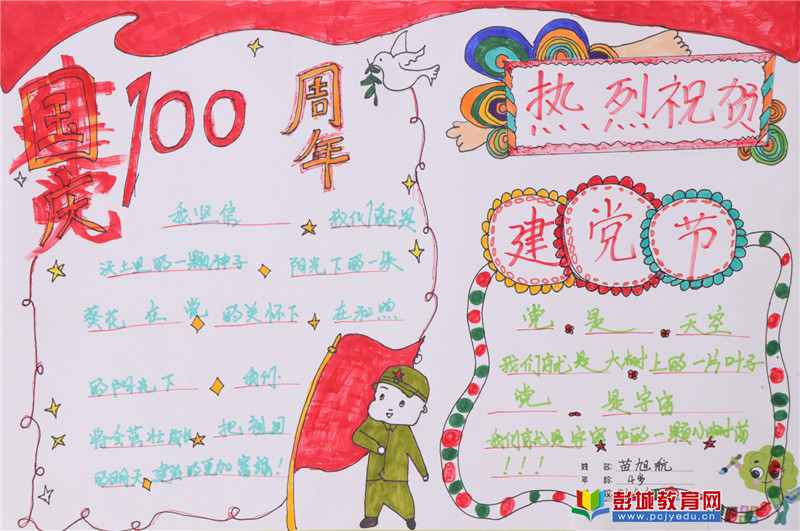 国庆100周年
热烈祝贺
建党节
我坚信 我们就是
沃土里的一颗种子 阳光下的一朵
葵花 在党的关怀下 在和煦
的阳光下 我们
将会茁壮成长 把祖国
的明天建设的更加富强!
党是天空
我们就是大树上的一片叶子
党是宇宙
我们就是宇宙中的一颗小树苗
!!!
姓名:苗旭航
年龄:4岁
彭城教育网
www.pcjyedu.cn